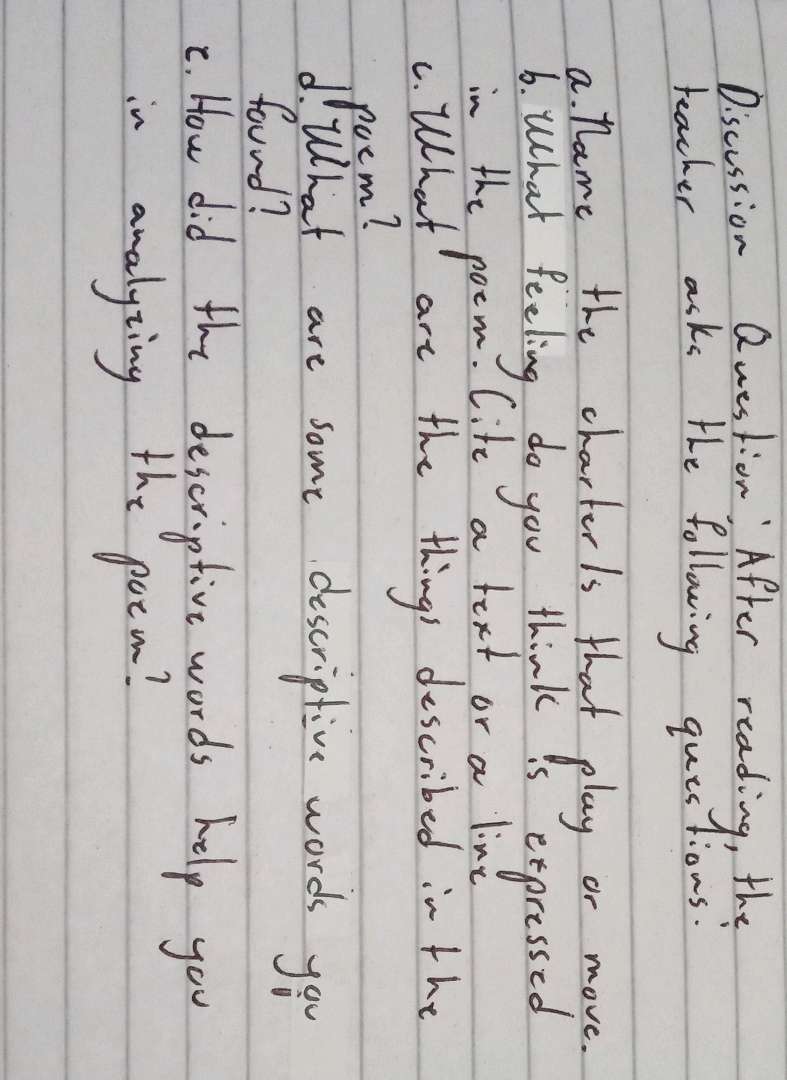 Discussion Question: After reading, the
teacher asks the following questions.
a. Name the charter/s that play or move.
b. What feeling do you think is expressed
in the poem. Cite a text or a line
c. What are the things described in the
poem?
d. What are some descriptive words you
found?
e. How did the descriptive words help you
in analyzing the poem?